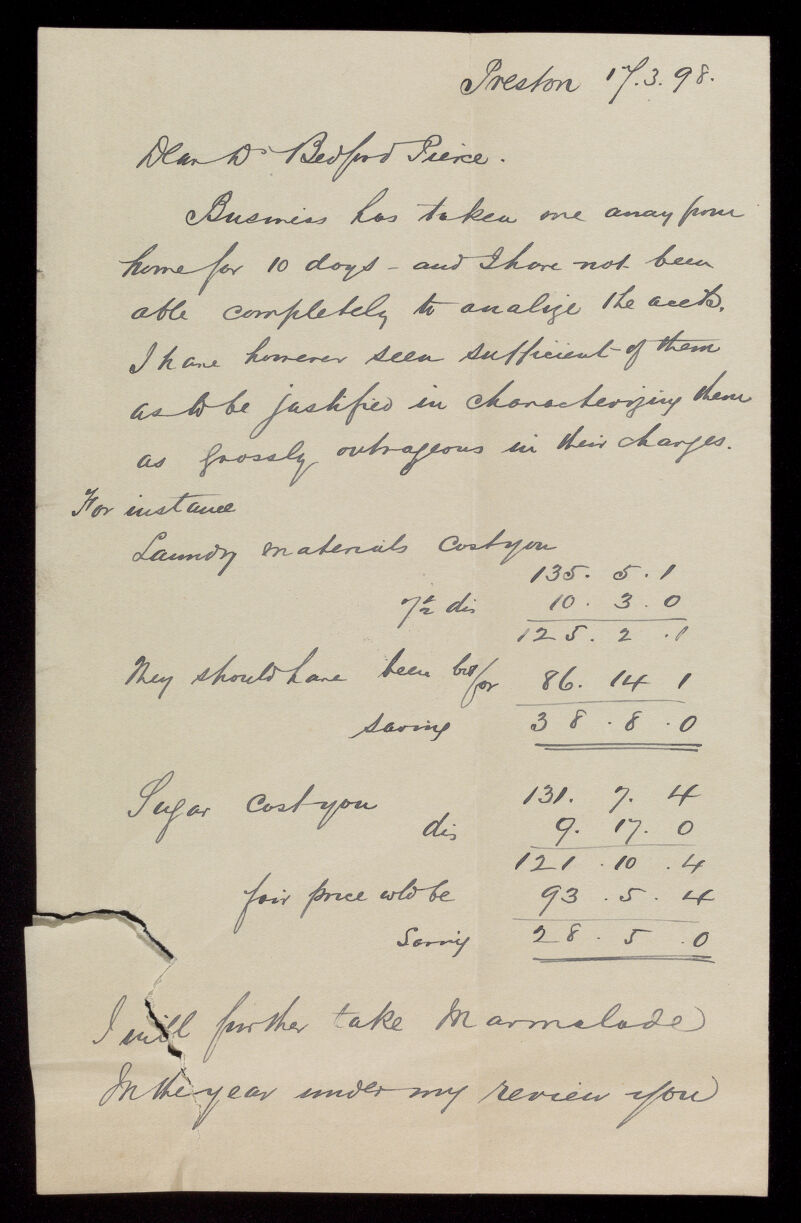 Preston 17.3.98.
Dear Dr Bedford Pierce.
Business has taken me away from
home for 10 days - and I have not been
able completely to analize the accts.
I have however seen sufficient of them
as to be justified in characterizing them
as grossly outrageous in their charges.
For instance
Laundry materials cost you
135. 5. 1
7½ dis 10. 3. 0
125. 2. 1
They should have been bot for 86. 14 1
Saving 38. 8. 0
Sugar cost you 131. 7. 4
dis 9. 17. 0
121. 10. 4
fair price wld be 93. 5. 4
Saving 28. 5. 0
I will further take Marmalade
In the year under my review you